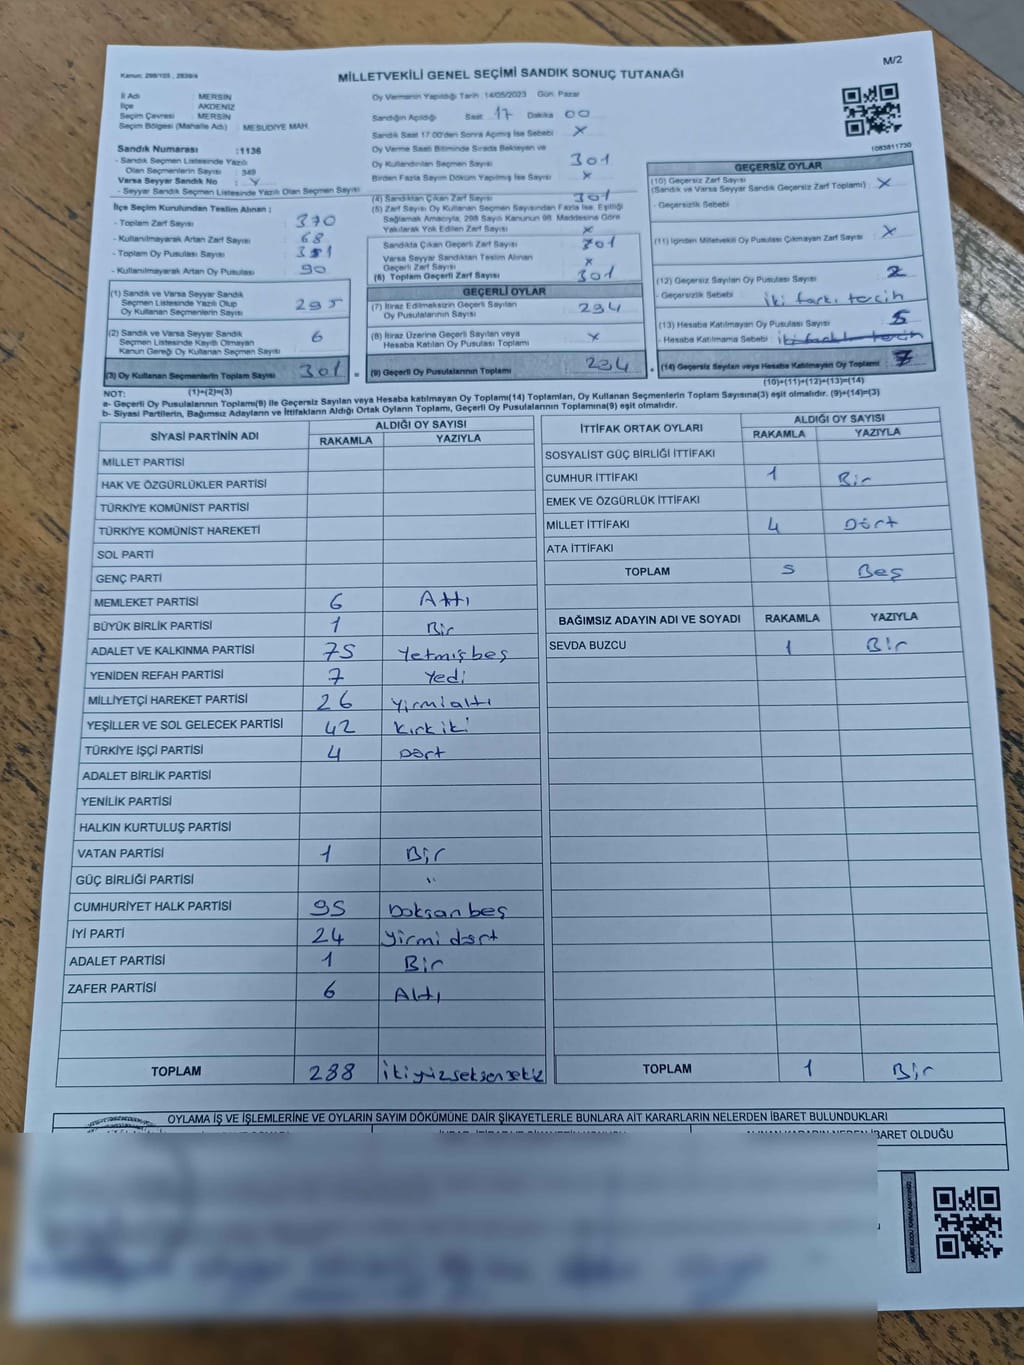 Kanun: 298/105 , 2839/4
MİLLETVEKİLİ GENEL SEÇİMİ SANDIK SONUÇ TUTANAĞI
M/2
İl Adı : MERSİN
İlçe : AKDENİZ
Seçim Çevresi : MERSİN
Seçim Bölgesi (Mahalle Adı) : MESUDİYE MAH.
Sandık Numarası :1136
- Sandık Seçmen Listesinde Yazılı
Olan Seçmenlerin Sayısı : 349
Varsa Seyyar Sandık No :
- Seyyar Sandık Seçmen Listesinde Yazılı Olan Seçmen Sayısı
Oy Vermenin Yapıldığı Tarih: 14/05/2023 Gün: Pazar
Sandığın Açıldığı Saat 17 Dakika 00
Sandık Saat 17.00'den Sonra Açılmış İse Sebebi : X
Oy Verme Saati Bitiminde Sırada Bekleyen ve
Oy Kullandırılan Seçmen Sayısı : 301
Birden Fazla Sayım Döküm Yapılmış İse Sayısı : X
1083811730
İlçe Seçim Kurulundan Teslim Alınan ;
- Toplam Zarf Sayısı : 370
- Kullanılmayarak Artan Zarf Sayısı : 68
- Toplam Oy Pusulası Sayısı : 391
- Kullanılmayarak Artan Oy Pusulası : 90
(1) Sandık ve Varsa Seyyar Sandık
Seçmen Listesinde Yazılı Olup
Oy Kullanan Seçmenlerin Sayısı : 295
(2) Sandık ve Varsa Seyyar Sandık
Seçmen Listesinde Kayıtlı Olmayan
Kanun Gereği Oy Kullanan Seçmen Sayısı : 6
(3) Oy Kullanan Seçmenlerin Toplam Sayısı : 301
(1)+(2)=(3)
(4) Sandıktan Çıkan Zarf Sayısı : 301
(5) Zarf Sayısı Oy Kullanan Seçmen Sayısından Fazla İse, Eşitliği
Sağlamak Amacıyla, 298 Sayılı Kanunun 98. Maddesine Göre
Yakılarak Yok Edilen Zarf Sayısı : X
Sandıkta Çıkan Geçerli Zarf Sayısı : 301
Varsa Seyyar Sandıktan Teslim Alınan
Geçerli Zarf Sayısı : X
(6) Toplam Geçerli Zarf Sayısı : 301
GEÇERLİ OYLAR
(7) İtiraz Edilmeksizin Geçerli Sayılan
Oy Pusulalarının Sayısı : 294
(8) İtiraz Üzerine Geçerli Sayılan veya
Hesaba Katılan Oy Pusulası Toplamı : X
(9) Geçerli Oy Pusulalarının Toplamı : 294
GEÇERSİZ OYLAR
(10) Geçersiz Zarf Sayısı
(Sandık ve Varsa Seyyar Sandık Geçersiz Zarf Toplamı) : X
- Geçersizlik Sebebi :
(11) İçinden Milletvekili Oy Pusulası Çıkmayan Zarf Sayısı : X
(12) Geçersiz Sayılan Oy Pusulası Sayısı : 2
- Geçersizlik Sebebi : İki farkı tercih
(13) Hesaba Katılmayan Oy Pusulası Sayısı : 5
- Hesaba Katılmama Sebebi :
(14) Geçersiz Sayılan veya Hesaba Katılmayan Oy Toplamı : 7
(10)+(11)+(12)+(13)=(14)
NOT:
a- Geçerli Oy Pusulalarının(9) ile Geçersiz Sayılan veya Hesaba katılmayan Oy Toplamı(14) Toplamları, Oy Kullanan Seçmenlerin Toplam Sayısına(3) eşit olmalıdır. (9)+(14)=(3)
b- Siyasi Partilerin, Bağımsız Adayların ve İttifakların Aldığı Ortak Oyların Toplamı, Geçerli Oy Pusulalarının Toplamına(9) eşit olmalıdır.
SİYASİ PARTİNİN ADI
ALDIĞI OY SAYISI
RAKAMLA YAZIYLA
MİLLET PARTİSİ
HAK VE ÖZGÜRLÜKLER PARTİSİ
TÜRKİYE KOMÜNİST PARTİSİ
TÜRKİYE KOMÜNİST HAREKETİ
SOL PARTİ
GENÇ PARTİ
MEMLEKET PARTİSİ 6 Altı
BÜYÜK BİRLİK PARTİSİ 1 Bir
ADALET VE KALKINMA PARTİSİ 75 Yetmişbeş
YENİDEN REFAH PARTİSİ 7 Yedi
MİLLİYETÇİ HAREKET PARTİSİ 26 Yirmialtı
YEŞİLLER VE SOL GELECEK PARTİSİ 42 Kırkiki
TÜRKİYE İŞÇİ PARTİSİ 4 Dört
ADALET BİRLİK PARTİSİ
YENİLİK PARTİSİ
HALKIN KURTULUŞ PARTİSİ
VATAN PARTİSİ 1 Bir
GÜÇ BİRLİĞİ PARTİSİ
CUMHURİYET HALK PARTİSİ 95 Doksanbeş
İYİ PARTİ 24 Yirmi dört
ADALET PARTİSİ 1 Bir
ZAFER PARTİSİ 6 Altı
TOPLAM 288 ikiyüzseksensekiz
İTTİFAK ORTAK OYLARI
ALDIĞI OY SAYISI
RAKAMLA YAZIYLA
SOSYALİST GÜÇ BİRLİĞİ İTTİFAKI
CUMHUR İTTİFAKI 1 Bir
EMEK VE ÖZGÜRLÜK İTTİFAKI
MİLLET İTTİFAKI 4 Dört
ATA İTTİFAKI
TOPLAM 5 Beş
BAĞIMSIZ ADAYIN ADI VE SOYADI RAKAMLA YAZIYLA
SEVDA BUZCU 1 Bir
TOPLAM 1 Bir
OYLAMA İŞ VE İŞLEMLERİNE VE OYLARIN SAYIM DÖKÜMÜNE DAİR ŞİKAYETLERLE BUNLARA AİT KARARLARIN NELERDEN İBARET BULUNDUKLARI
ALINAN KARARIN NEDEN İBARET OLDUĞU